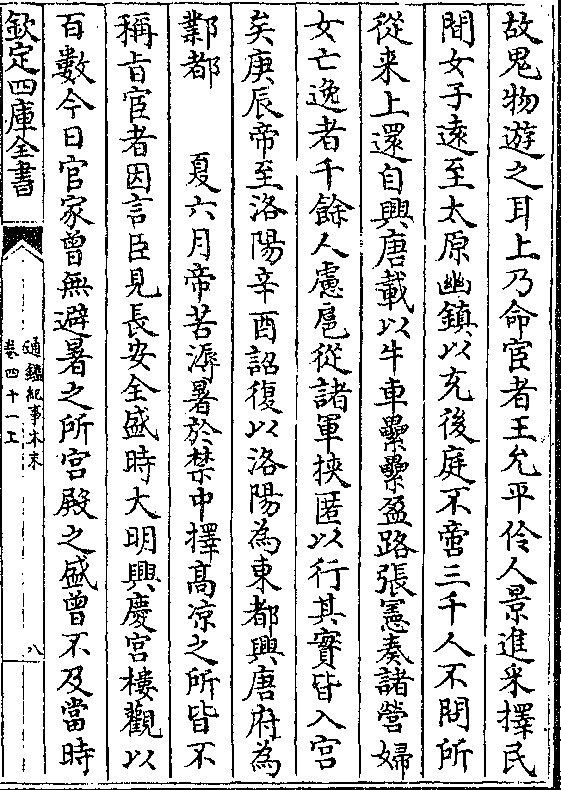 故鬼物遊之耳上乃命宦者王允平伶人景進采擇民
間女子遠至太原幽鎮以充後庭不啻三千人不問所
從来上還自興唐載以牛車纍纍盈路張憲奏諸營婦
女亡逸者千餘人慮扈從諸軍挾匿以行其實皆入宮
矣庚辰帝至洛陽辛酉詔復以洛陽為東都興唐府為
鄴都　　夏六月帝苦溽暑於禁中擇髙凉之所皆不
稱旨宦者因言臣見長安全盛時大明興慶宮樓觀以
百數今日官家曾無避暑之所宮殿之盛曾不及當時
欽定四庫全書
通鑑紀事本末
卷四十一上
八